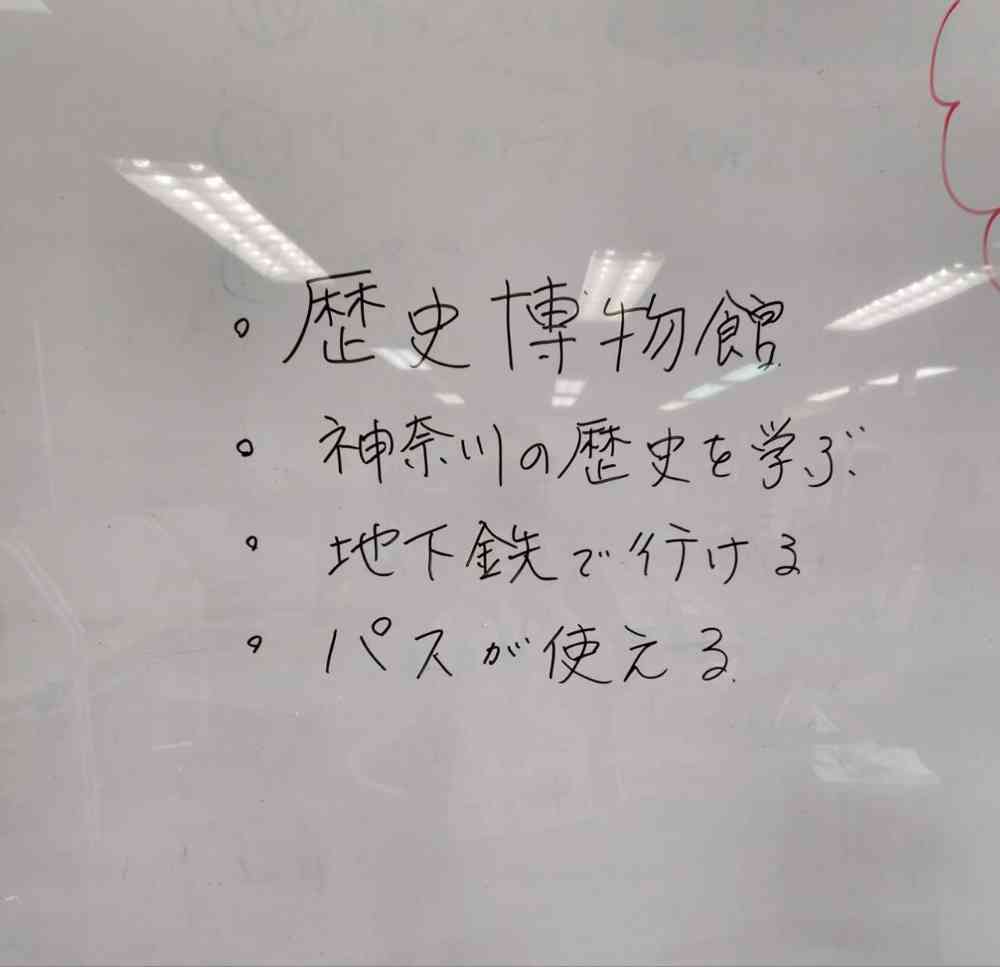 ・歴史博物館
・神奈川の歴史を学ぶ
・地下鉄で行ける
・パスが使える